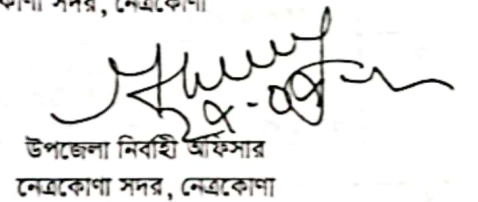 সদর, নেত্রকোণা
উপজেলা নির্বাহী অফিসার
নেত্রকোণা সদর, নেত্রকোণা